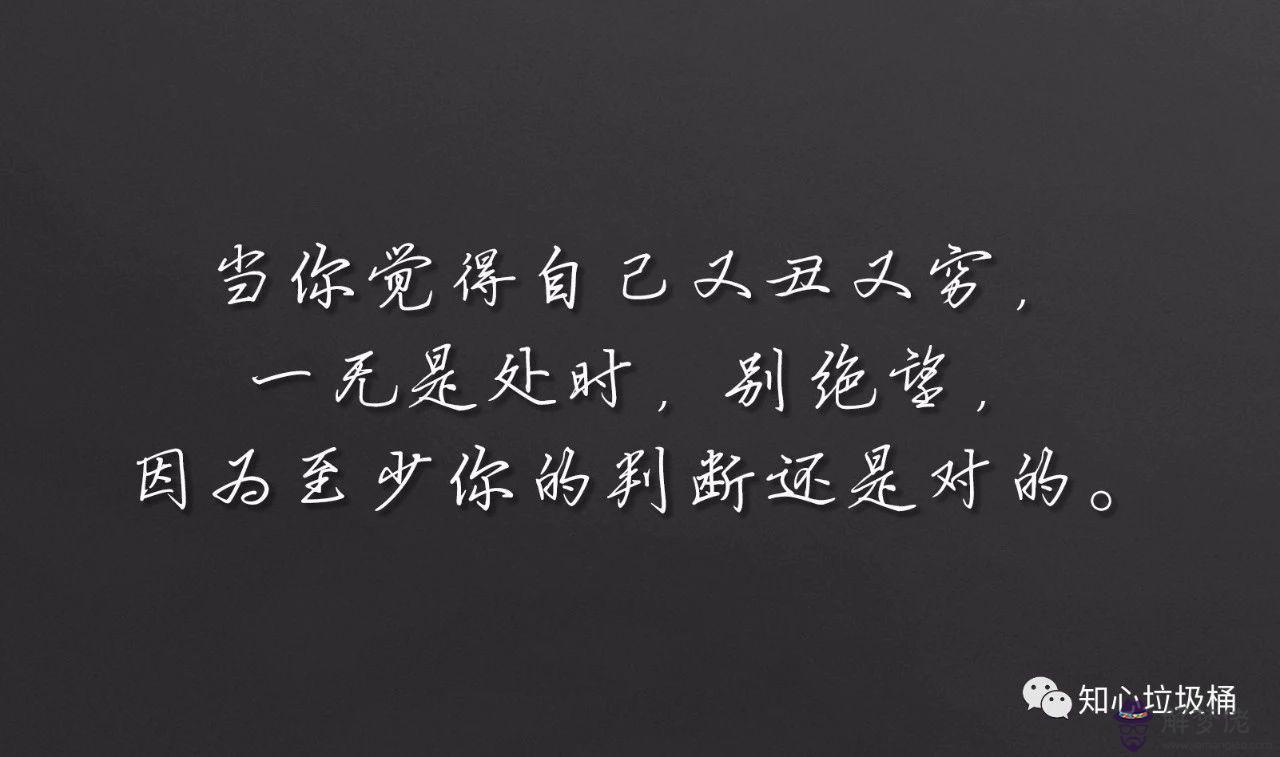 当你觉得自己又丑又穷，
一无是处时，别绝望，
因为至少你的判断还是对的。
知心垃圾桶
解梦佬